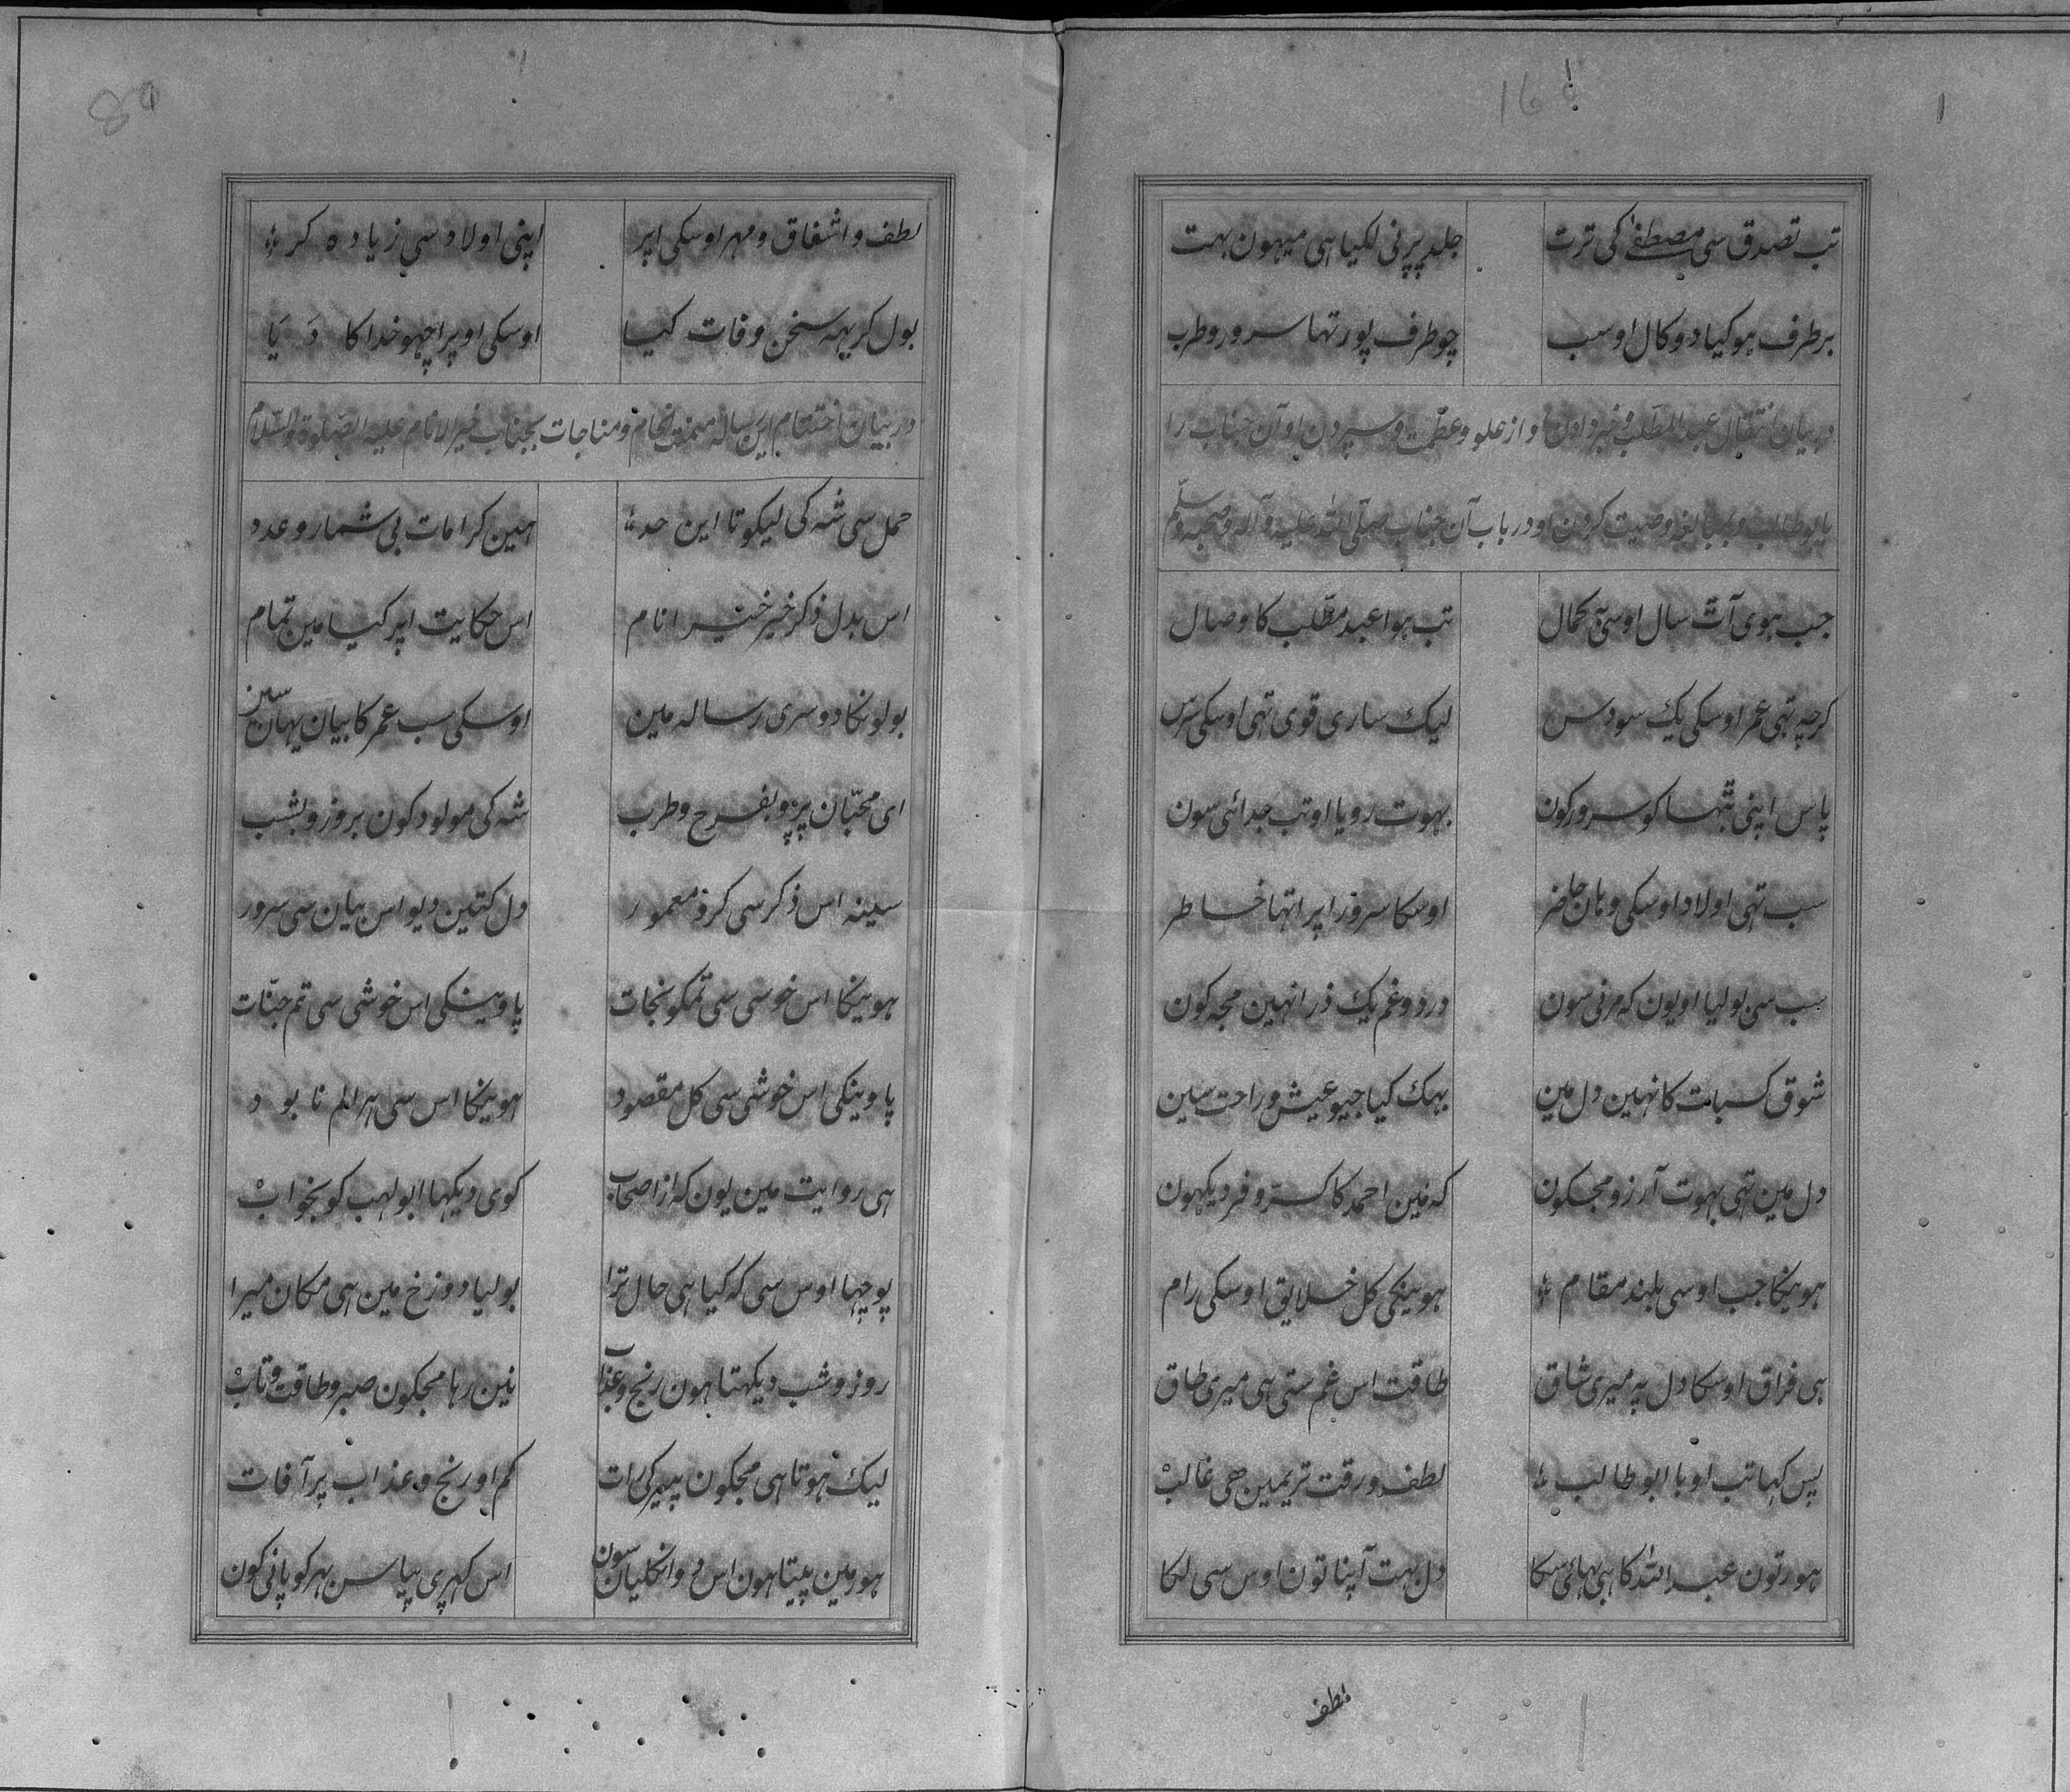 تب تصدق سی مصطفےٰ کی ترت جلد پڑنی لکیا ہی میہون بہت
برطرف ہو کیا دوکال او سب چو طرف پور تہا سرور و طرب
در بیان انتقال عبد المطّلب و خبر دادن او از علو و عظمت و سپردن او آن جناب را
بابو طالب و بمبالغه وصیت کردن او در باب آن جناب صلّی الله علیه و آله و صحبه و سلّم
جب ہوی آٹ سال اوسی کمال تب ہوا عبد مطّلب کا وصال
کرچہ تہی عمر اوسکی یک سو دس لیک ساری قوی تہی اوسکی سرس
پاس اپنی بٹہا کو سرور کون بہوت رویا او تب جدائی سون
سب تہی اولاد اوسکی وہان حاضر اوسکا سرور اپر اتہا خاطر
سب سی بولیا او یون کہ مرنی سون درد و غم یک ذرا نہین مجہ کون
شوق کس بات کا نہین دل مین بہک کیا جیو عیش و راحت سین
دل مین تہی بہوت آرزو مجکون کہ مین احمد کا کرّ و فر دیکہون
ہوینکا جب اوسی بلند مقام ہوینکی کل خلایق اوسکی رام
ہی فراق اوسکا دل پہ میری شاق طاقت اس غم ستی ہی میری طاق
پس کہا تب او با ابو طالب لطف و رقت تریمین ھی غالب
ہور تون عبد اللہ کا ہی بہائی سکا دل بہت آپنا تون اوس سی لکا
لطف
لطف و اشفاق و مہر اوسکی اپر اپنی اولاد سی زیادہ کر
بول کر یہہ سخن وفات کیا اوسکی اوپر اچہو خدا کا دَیَا
در بیان اختتام این رساله میمنت انجام و مناجات بجناب خیر الانام علیه الصّلوة والسّلام
حمل سی شہ کی لیکو تا این حد ہین کرامات بی شمار و عدد
اس بدل ذکر خیر خیر انام اس حکایت اپر کیا مین تمام
بولونکا دوسری رسالہ مین اوسکی سب عمر کا بیان یہان سین
ای محبّان پڑہو بفرح و طرب شہ کی مولود کون بروز و بشب
سینہ اس ذکر سی کرو معمور دل کتین دیو اس بیان سی سرور
ہوینکا اس خوسی سی تمکو نجات پاوینکی اس خوشی سی تم جنّات
پاوینکی اس خوشی سی کل مقصود ہوینکا اس سی ہر الم نابود
ہی روایت مین یون کہ از اصحاب کوی دیکہا ابو لہب کو بخواب
پوچہا اوس سی کہ کیا ہی حال ترا بولیا دوزخ مین ہی مکان میرا
روز و شب دیکہتا ہون رنج و عذاب نین رہا مجکون صبر و طاقت و تاب
لیک ہوتا ہی مجکون پیر کی رات کم او رنج و عذاب پر آفات
ہور مین پیتا ہون اس دو انکلیان سون اس کہری پیاس بہر کو پانی کون